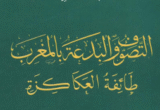 التصوف والبدعة بالمغرب
طائفة العكاكزة